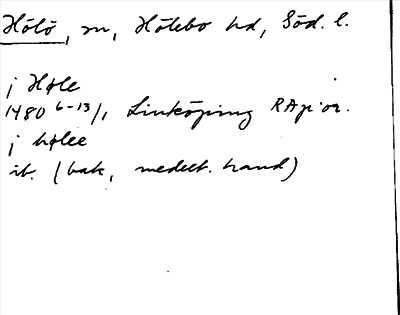 Hölö, sn, Hölebo hd, Söd. l.
j Høle
1480 6-13/1 Linköping RAp or.
j hølee
ib. (bak, medelt. hand)